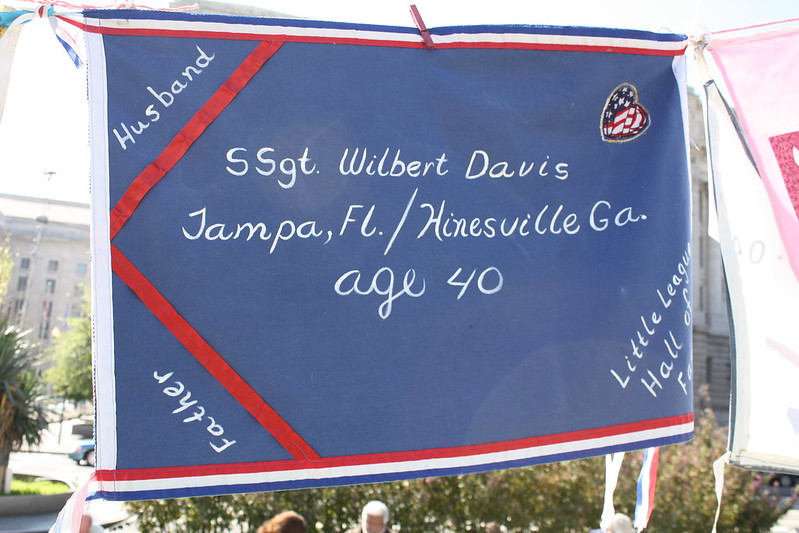 Husband
SSgt. Wilbert Davis
Tampa, Fl./Hinesville Ga.
age 40
Father
Little League
Hall of